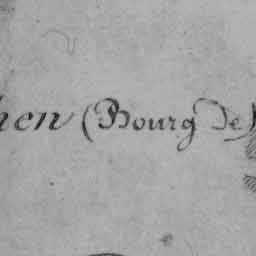 hen (Bourg de)